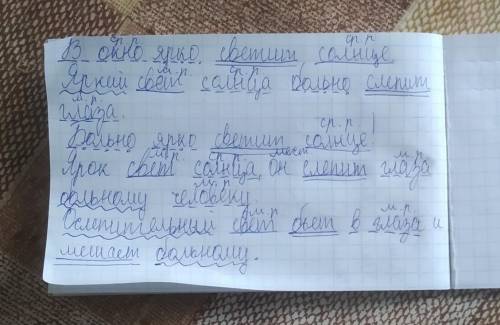 ср. р ср. р
В окно ярко светит солнце.
м. р ср. р
Яркий свет солнца больно слепит
м. р
глаза.
ср. р
Больно ярко светит солнце!
м. р ср. р мест м. р
Ярок свет солнца, он слепит глаза
м. р
больному человеку
м. р м. р
Ослепительный свет бьет в глаза и
мешает больному.